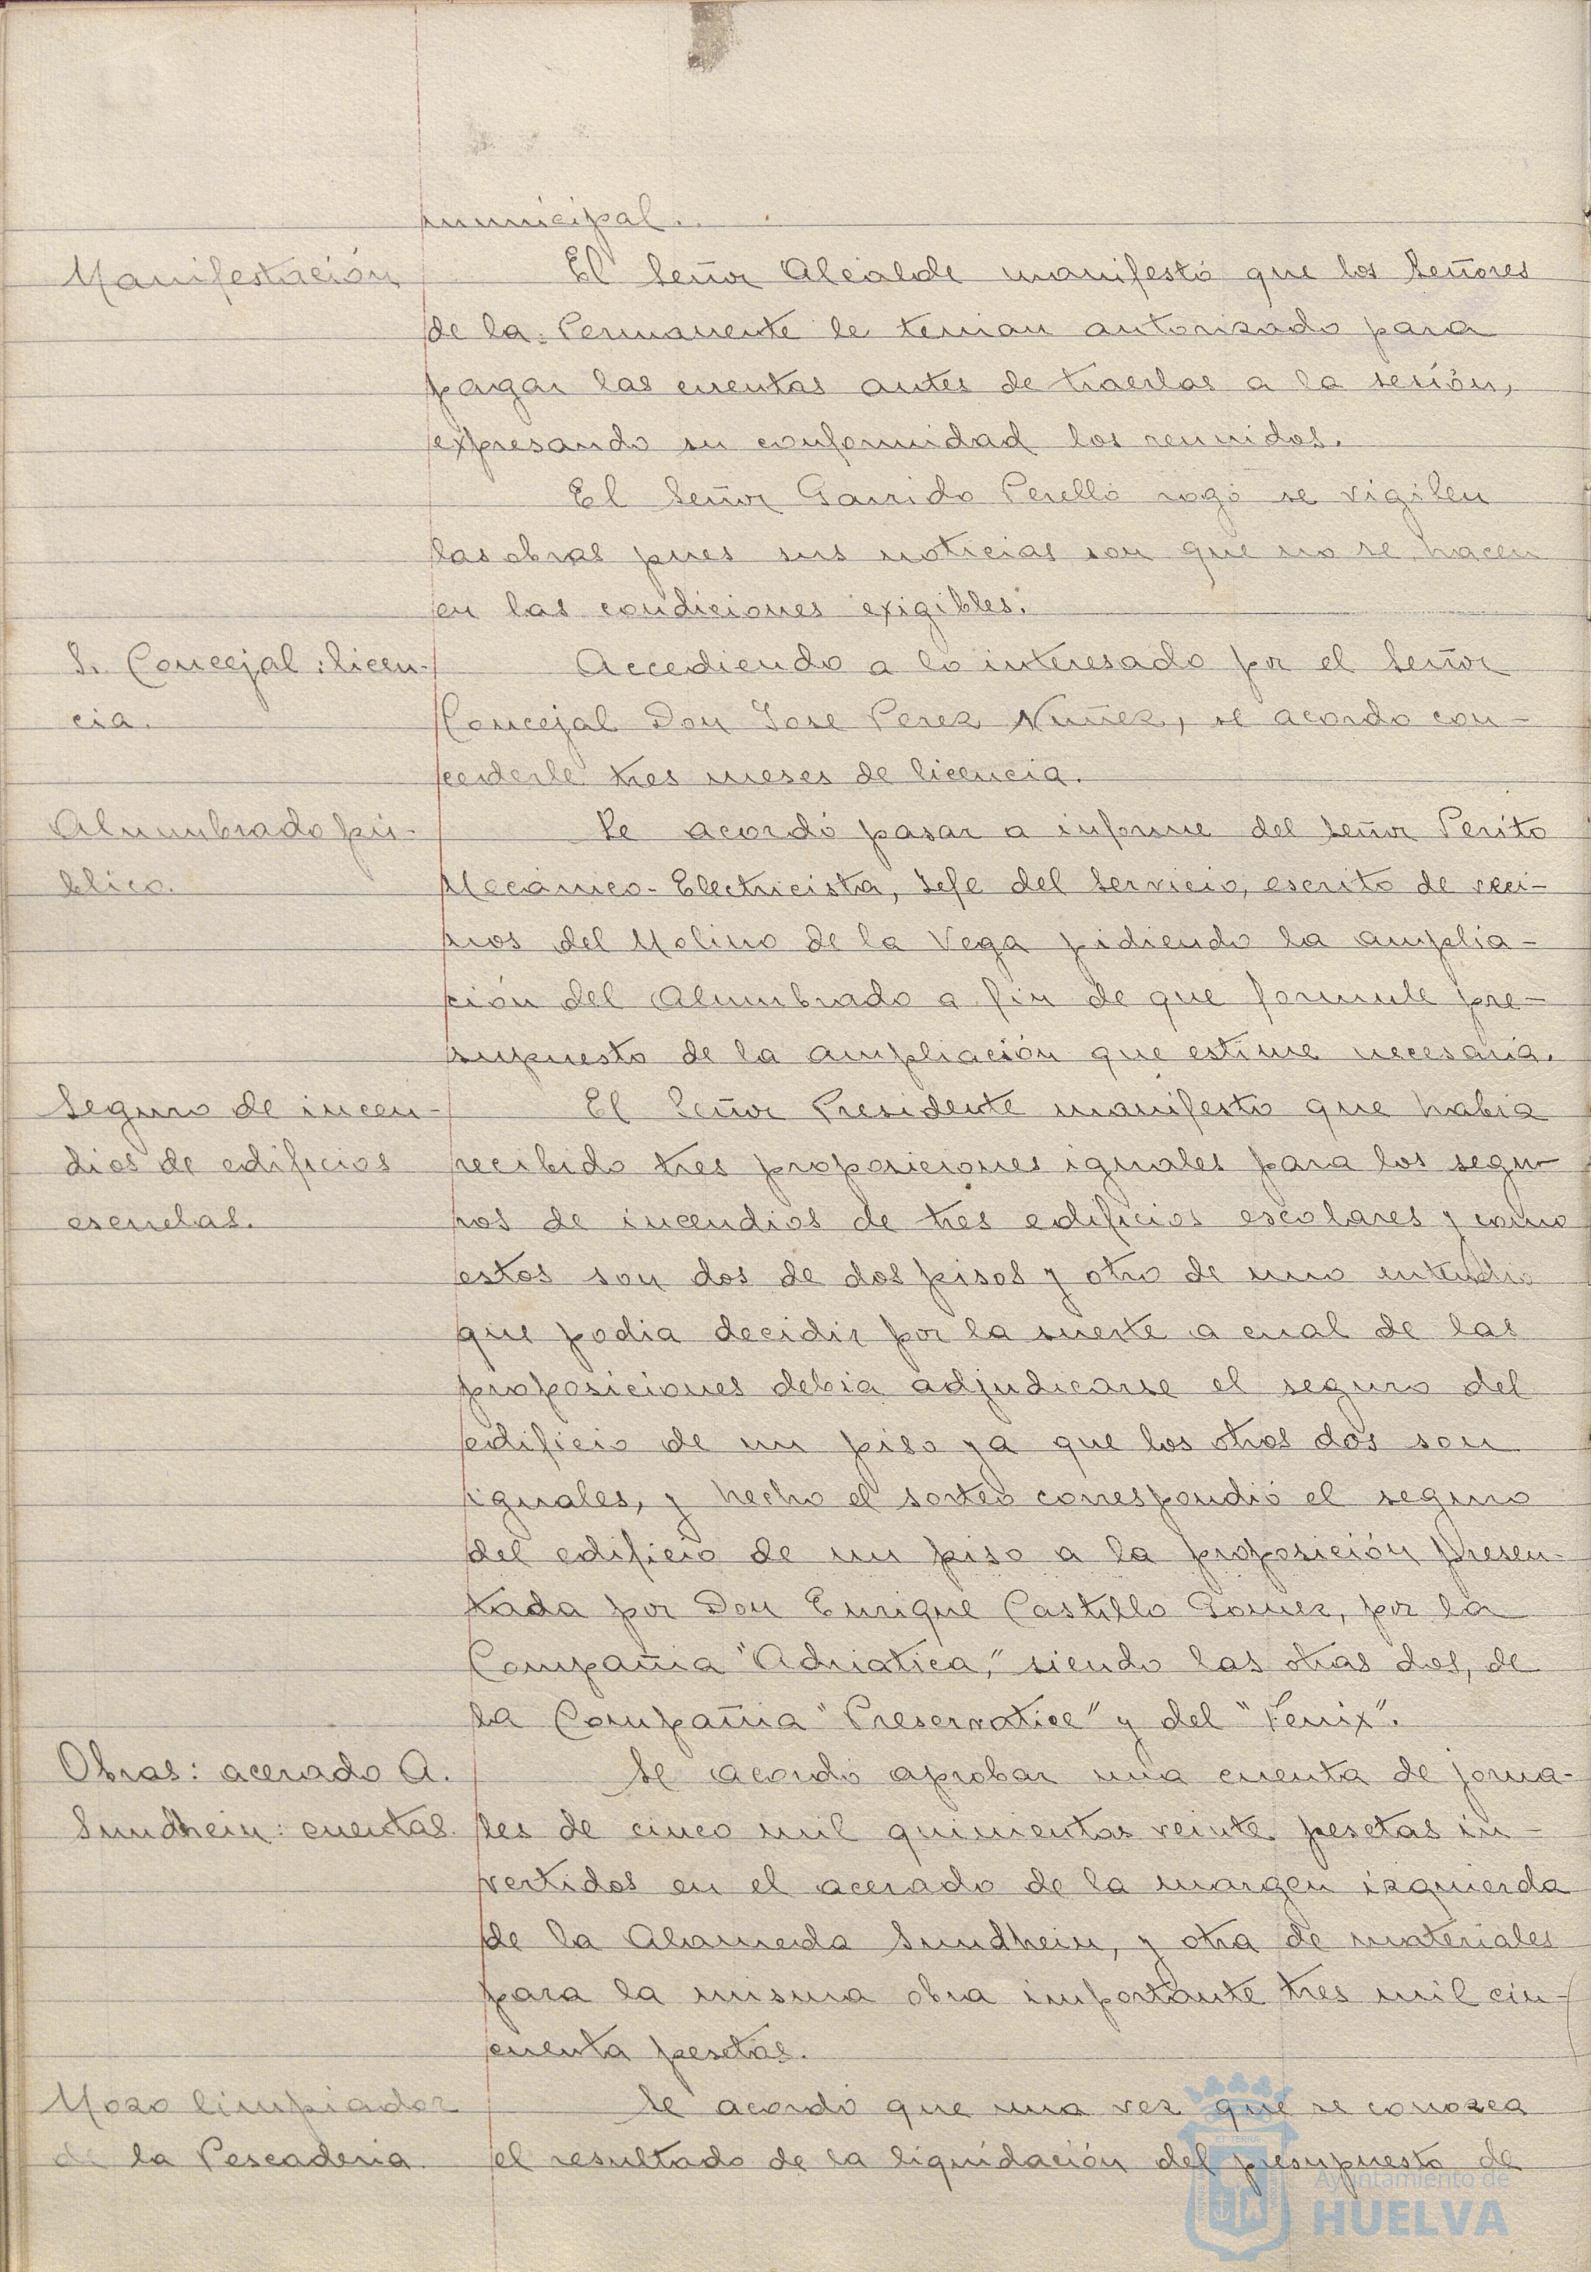 municipal.
Manifestación
El Señor Alcalde manifestó que los Señores
de la Permanente le tenian autorizado para
pagar las cuentas antes de traerlas a la sesión,
expresando su conformidad los reunidos.
El Señor Garrido Perelló rogó se vigilen
las obras pues sus noticias son que no se hacen
en las condiciones exigibles.
S. Concejal: licen-
cia.
Accediendo a lo interesado por el Señor
Concejal Don Jose Perez Nuñez, se acordo con-
cederle tres meses de licencia.
Alumbrado pú-
blico.
Se acordó pasar a informe del Señor Perito
Mecánico-Electricista, Jefe del Servicio, escrito de veci-
nos del Molino de la Vega pidiendo la amplia-
ción del Alumbrado a fin de que formule pre-
supuesto de la ampliación que estime necesaria.
Seguro de incen-
dios de edificios
escuelas.
El Señor Presidente manifesto que habia
recibido tres proposiciones iguales para los segu-
ros de incendios de tres edificios escolares y como
estos son dos de dos pisos y otro de uno entendio
que podia decidir por la suerte a cual de las
proposiciones debia adjudicarse el seguro del
edificio de un piso ya que los otros dos son
iguales, y hecho el sorteo correspondió el seguro
del edificio de un piso a la proposición presen-
tada por Don Enrique Castillo Gomez, por la
Compañia "Adriatica," siendo las otras dos, de
la Compañia "Preservatice" y del "Fenix".
Obras: acerado A.
Sundhein: cuentas.
Se acordó aprobar una cuenta de jorna-
les de cinco mil quinientas veinte pesetas in-
vertidos en el acerado de la margen izquierda
de la Alameda Sundhein, y otra de materiales
para la misma obra importante tres mil cin-
cuenta pesetas.
Mozo limpiador
de la Pescaderia.
Se acordó que una vez que se conozca
el resultado de la liquidación del presupuesto de
Ayuntamiento de
HUELVA